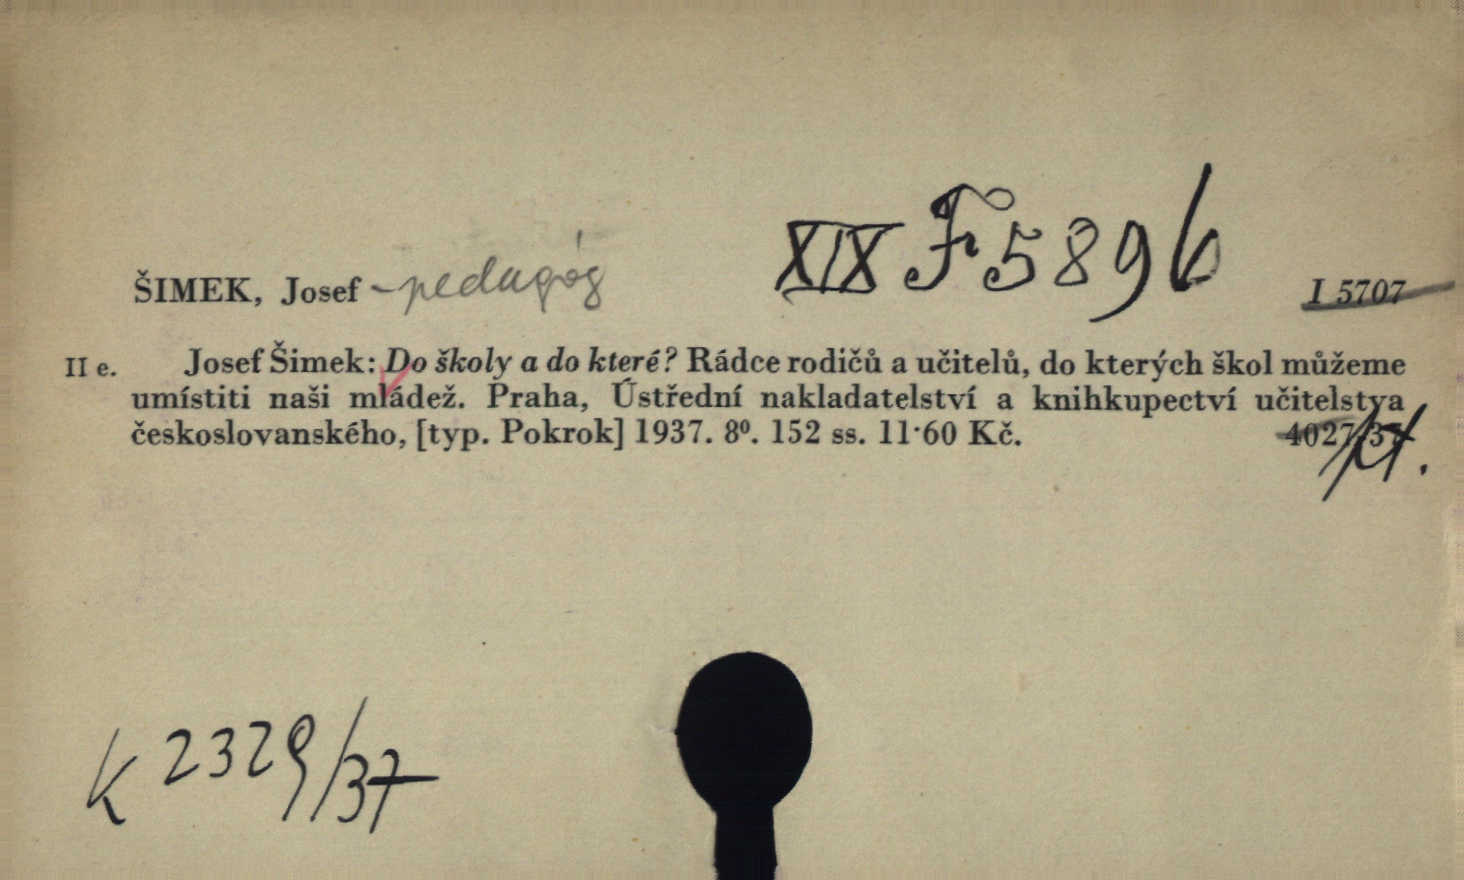 XIX F 5896
ŠIMEK, Josef - pedagóg
I 5707
II e. Josef Šimek: Do školy a do které? Rádce rodičů a učitelů, do kterých škol můžeme
umístiti naši mládež. Praha, Ústřední nakladatelství a knihkupectví učitelstva
československého, [typ. Pokrok] 1937. 8⁰. 152 ss. 11·60 Kč. 4027/37
K 2329/37